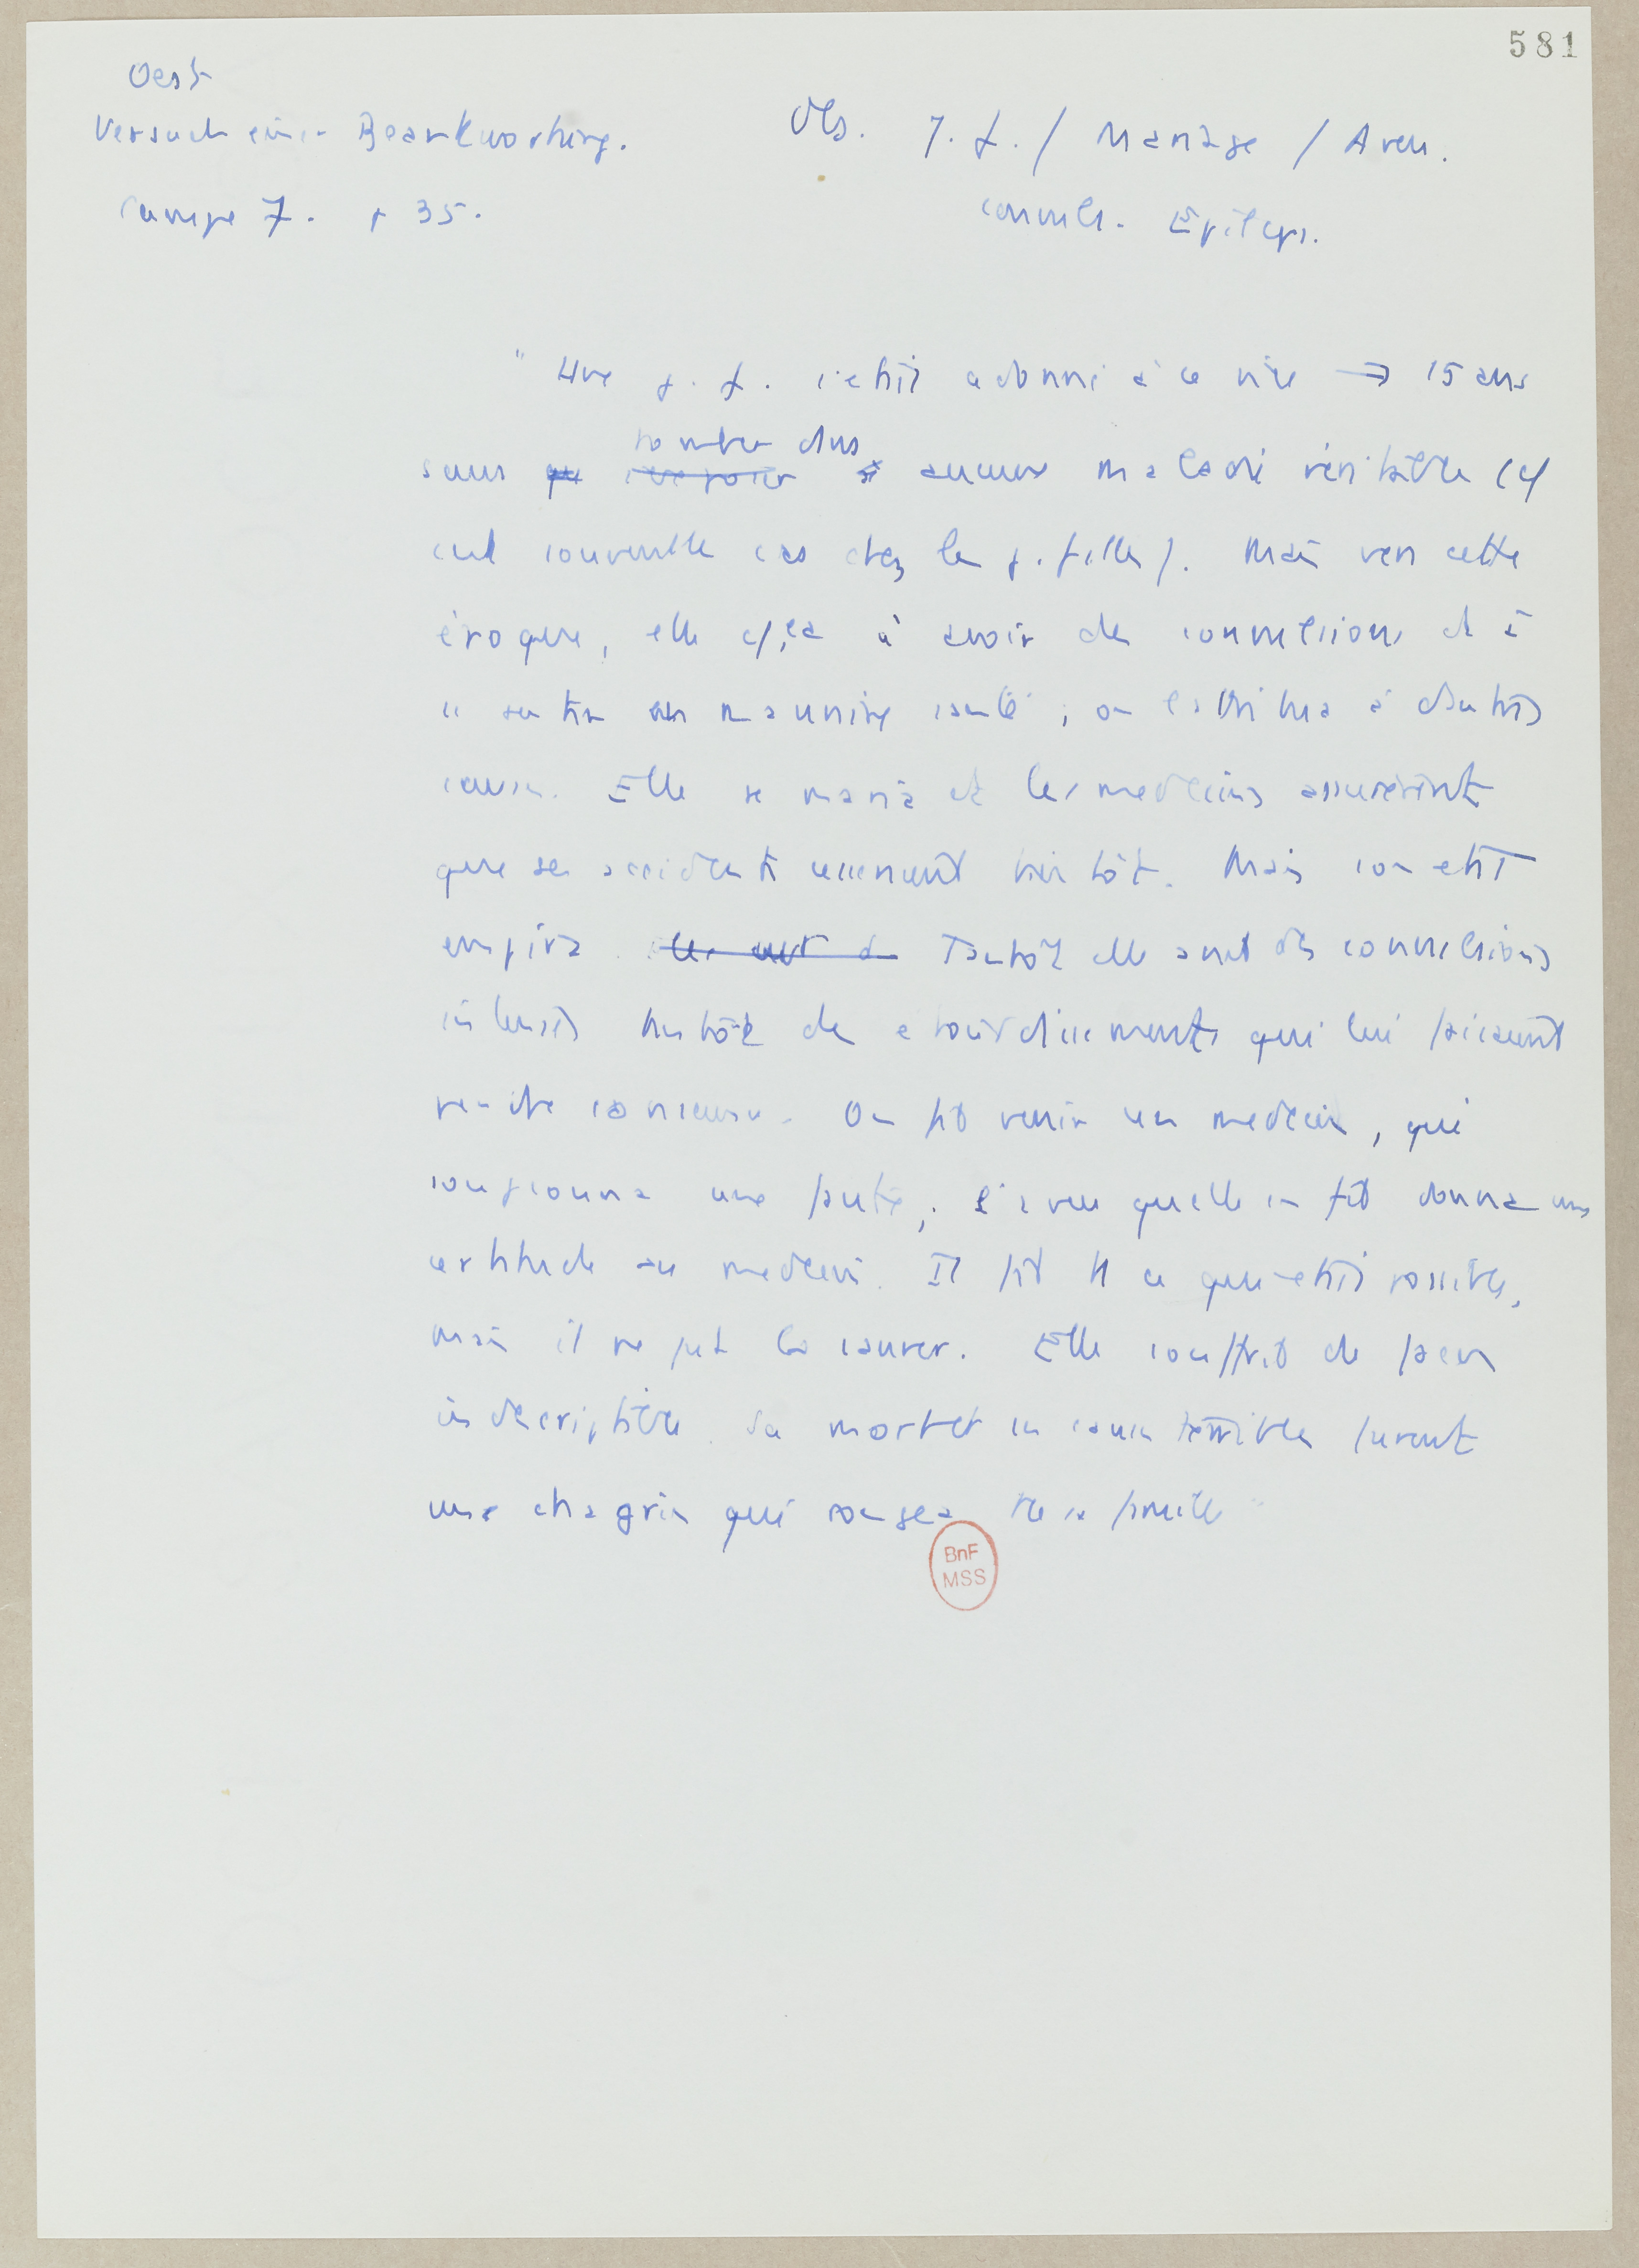 581
Oest
Versuch einer Beantwortung.
Campe 7. p 35.
Obs. J. f. / Mariage / Aveu.
convuls. Epileps.
" Une j. f. s'était adonné à ce vice → 15 ans
tomber dns
sans aucune maladie véritable (cf
cet souvent le cas chez les j. filles). Mais vers cette
époque, elle cça à avoir des convulsions et à
se sentir en mauvaise santé ; on l'attribua à d'autres
causes. Elle se maria et les médecins assurèrent
que ses accidents cesseraient bientôt. Mais son état
empira. Tantôt elle avait des convulsions
intenses tantôt des étourdissements qui lui faisaient
perdre conscience. On fit venir un médecin, qui
soupçonna une faute ; l'aveu qu'elle en fit donna une
certitude au médecin. Il fit tt ce qui était possible,
mais il ne put la sauver. Elle souffrit de façon
indescriptible. Sa mort et ses causes terribles furent
une chagrin qui rongea tte sa famille "
BnF
MSS